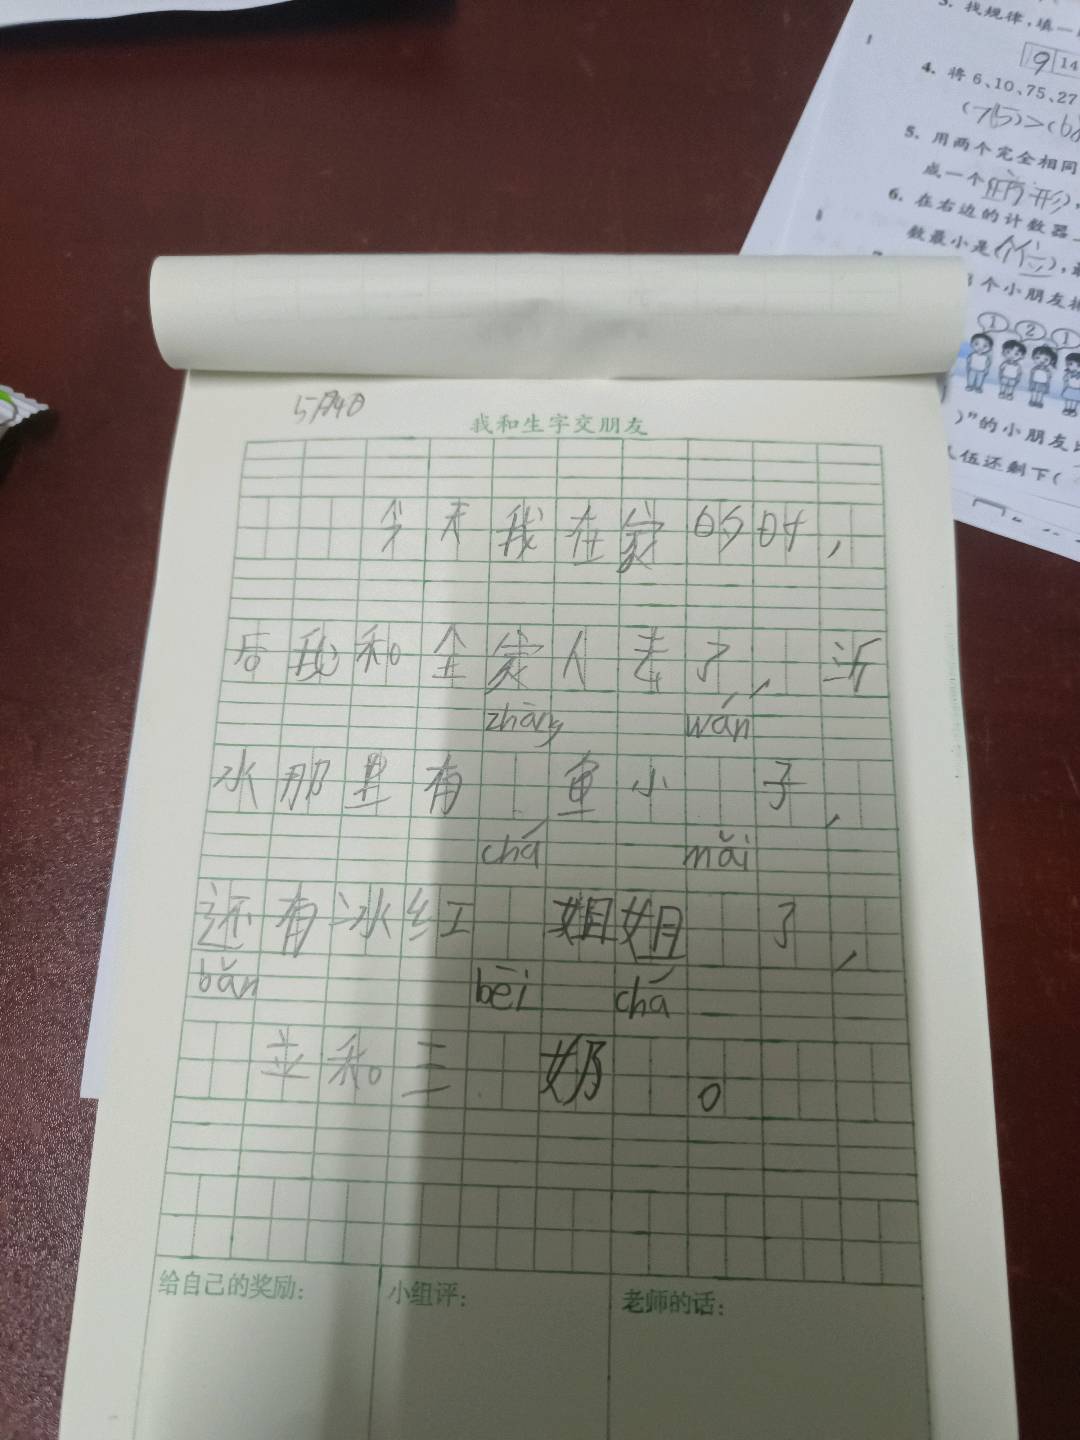 3. 找规律,填一
9 14
4. 将 6、10、75、27
(75)>(68
5. 用两个完全相同
成一个(正方形),
6. 在右边的计数器
数最小是(个位),最
个小朋友排
1 2 1
)”的小朋友比
伍还剩下(
5月4日
我和生字交朋友
今天我在家的时,
后我和全家人去了,沂
zhāng wán
水那里有 鱼小 子,
chá mǎi
还有冰红 姐姐 了,
bǎn bēi chá
立和三 奶 。
给自己的奖励:
小组评:
老师的话: